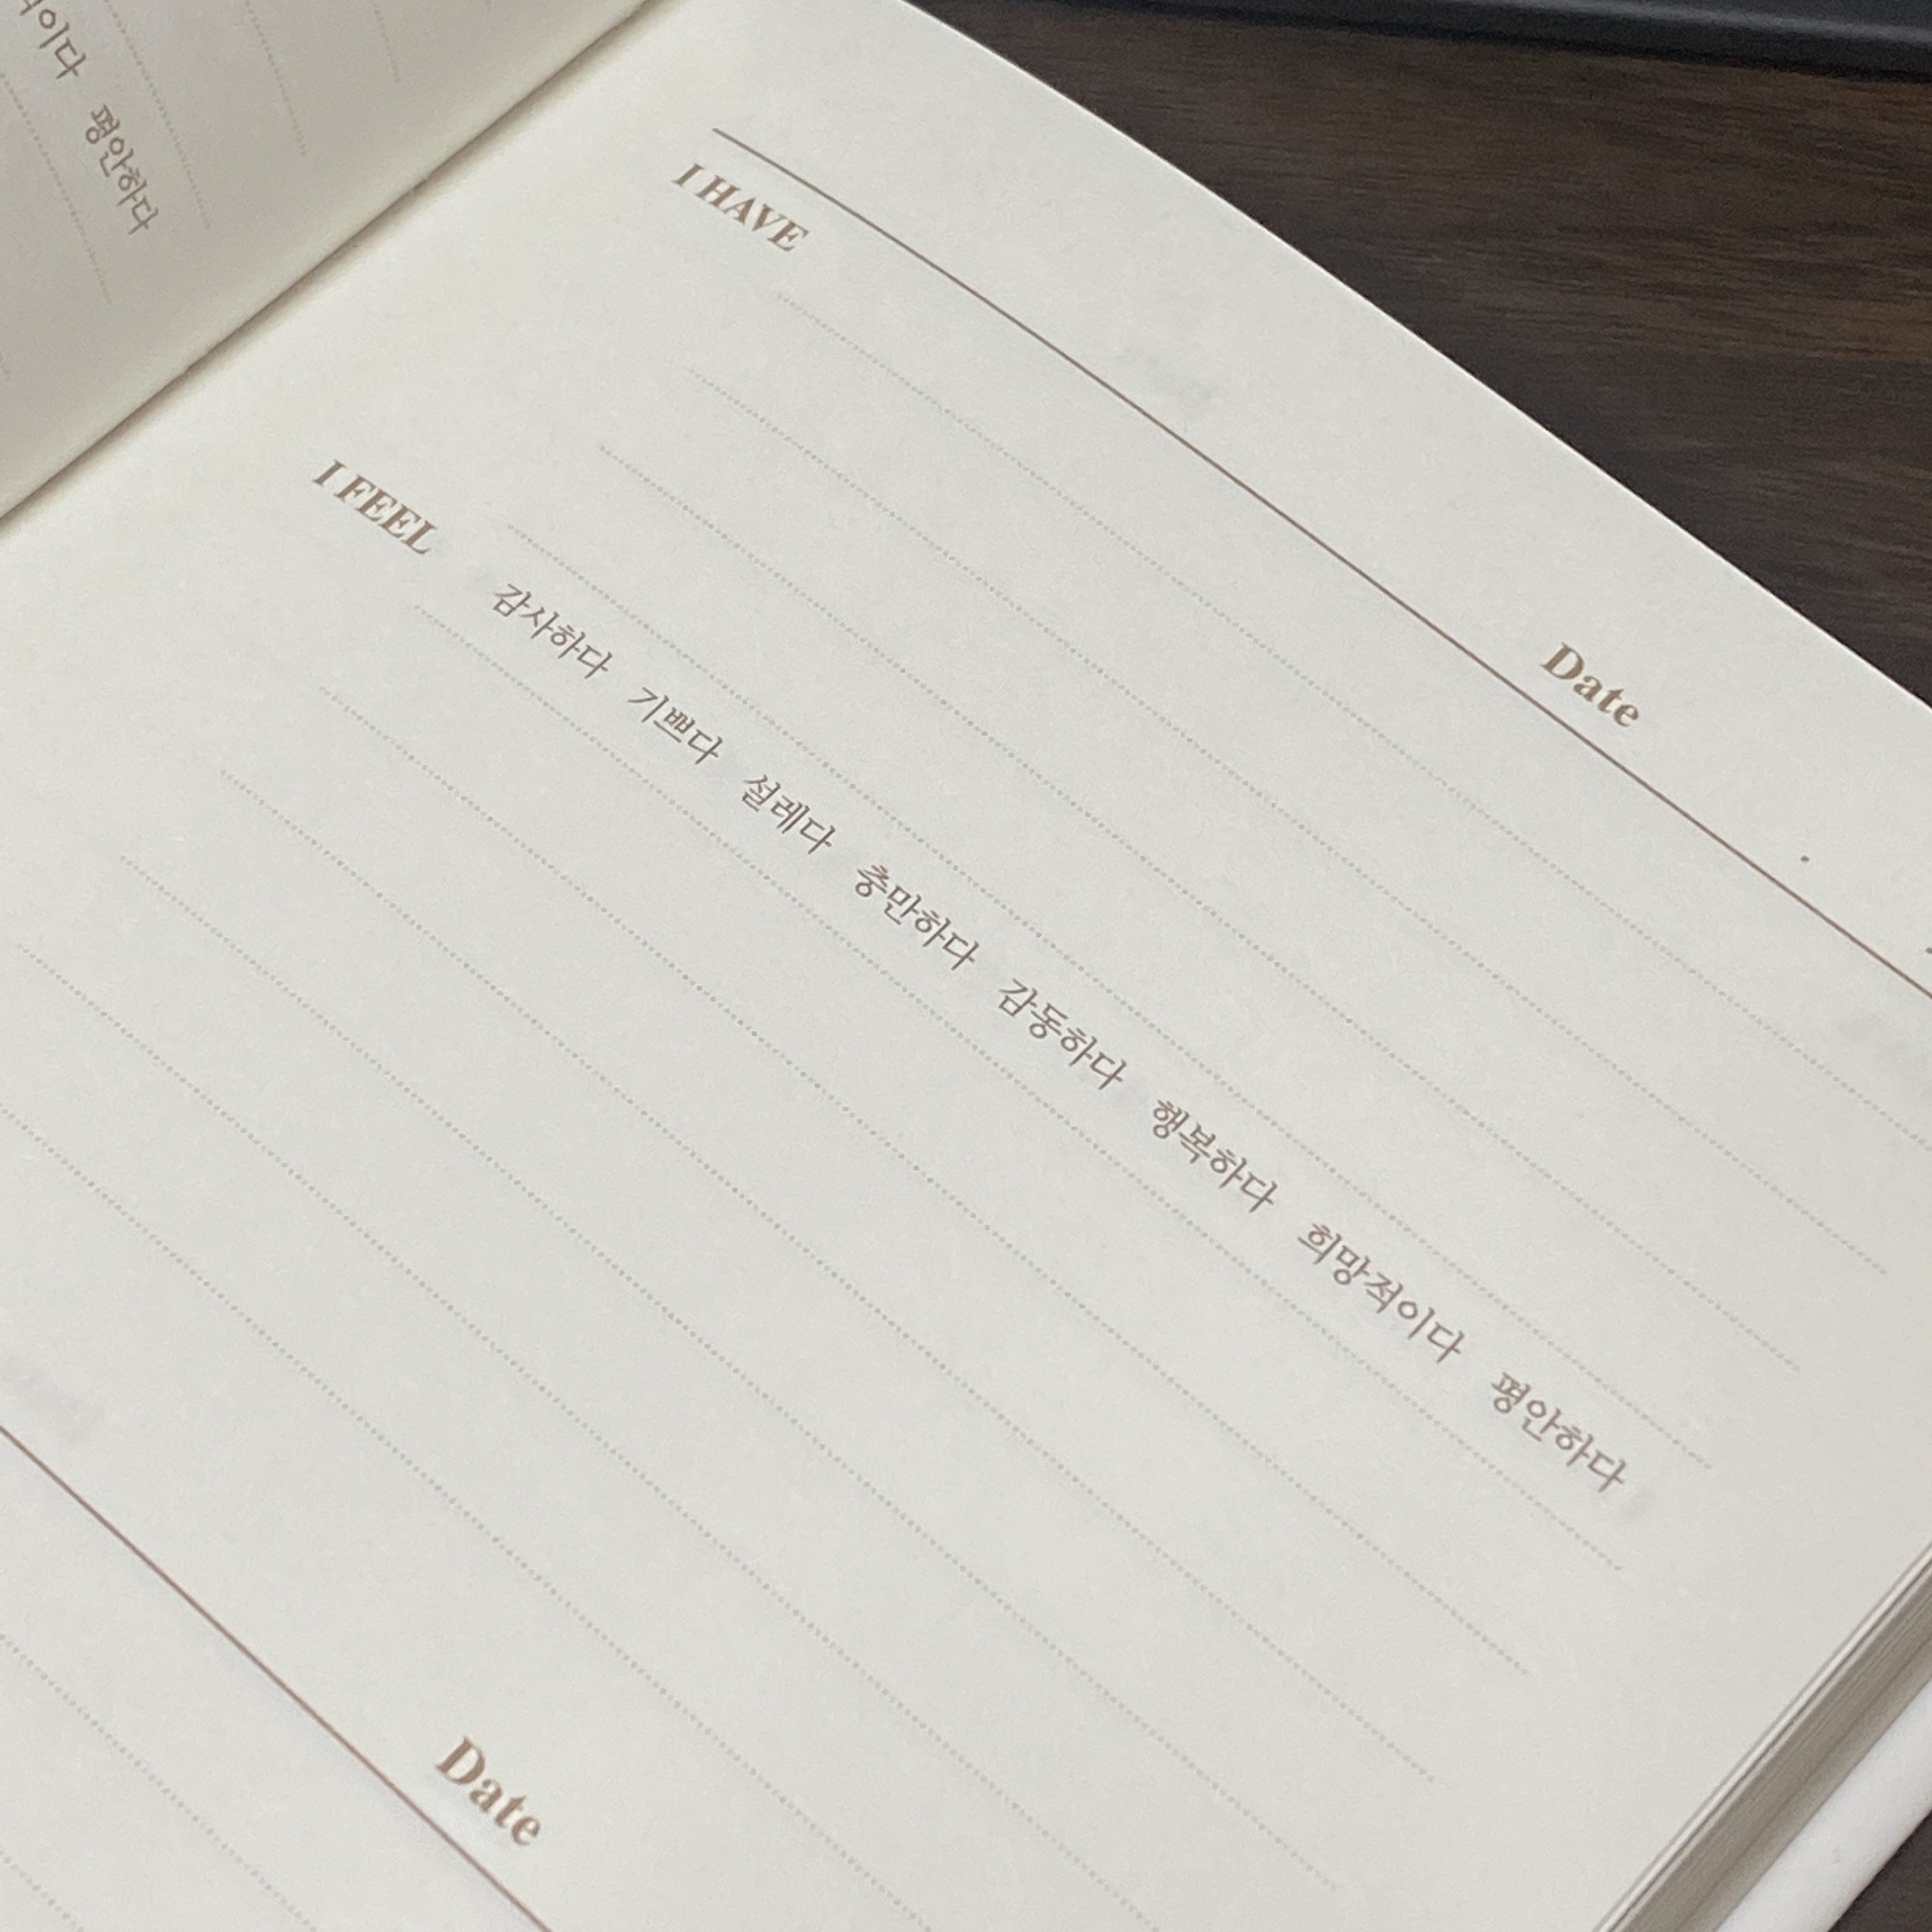 이다 평안하다
Date
I HAVE
I FEEL 감사하다 기쁘다 설레다 충만하다 감동하다 행복하다 희망적이다 평안하다
Date